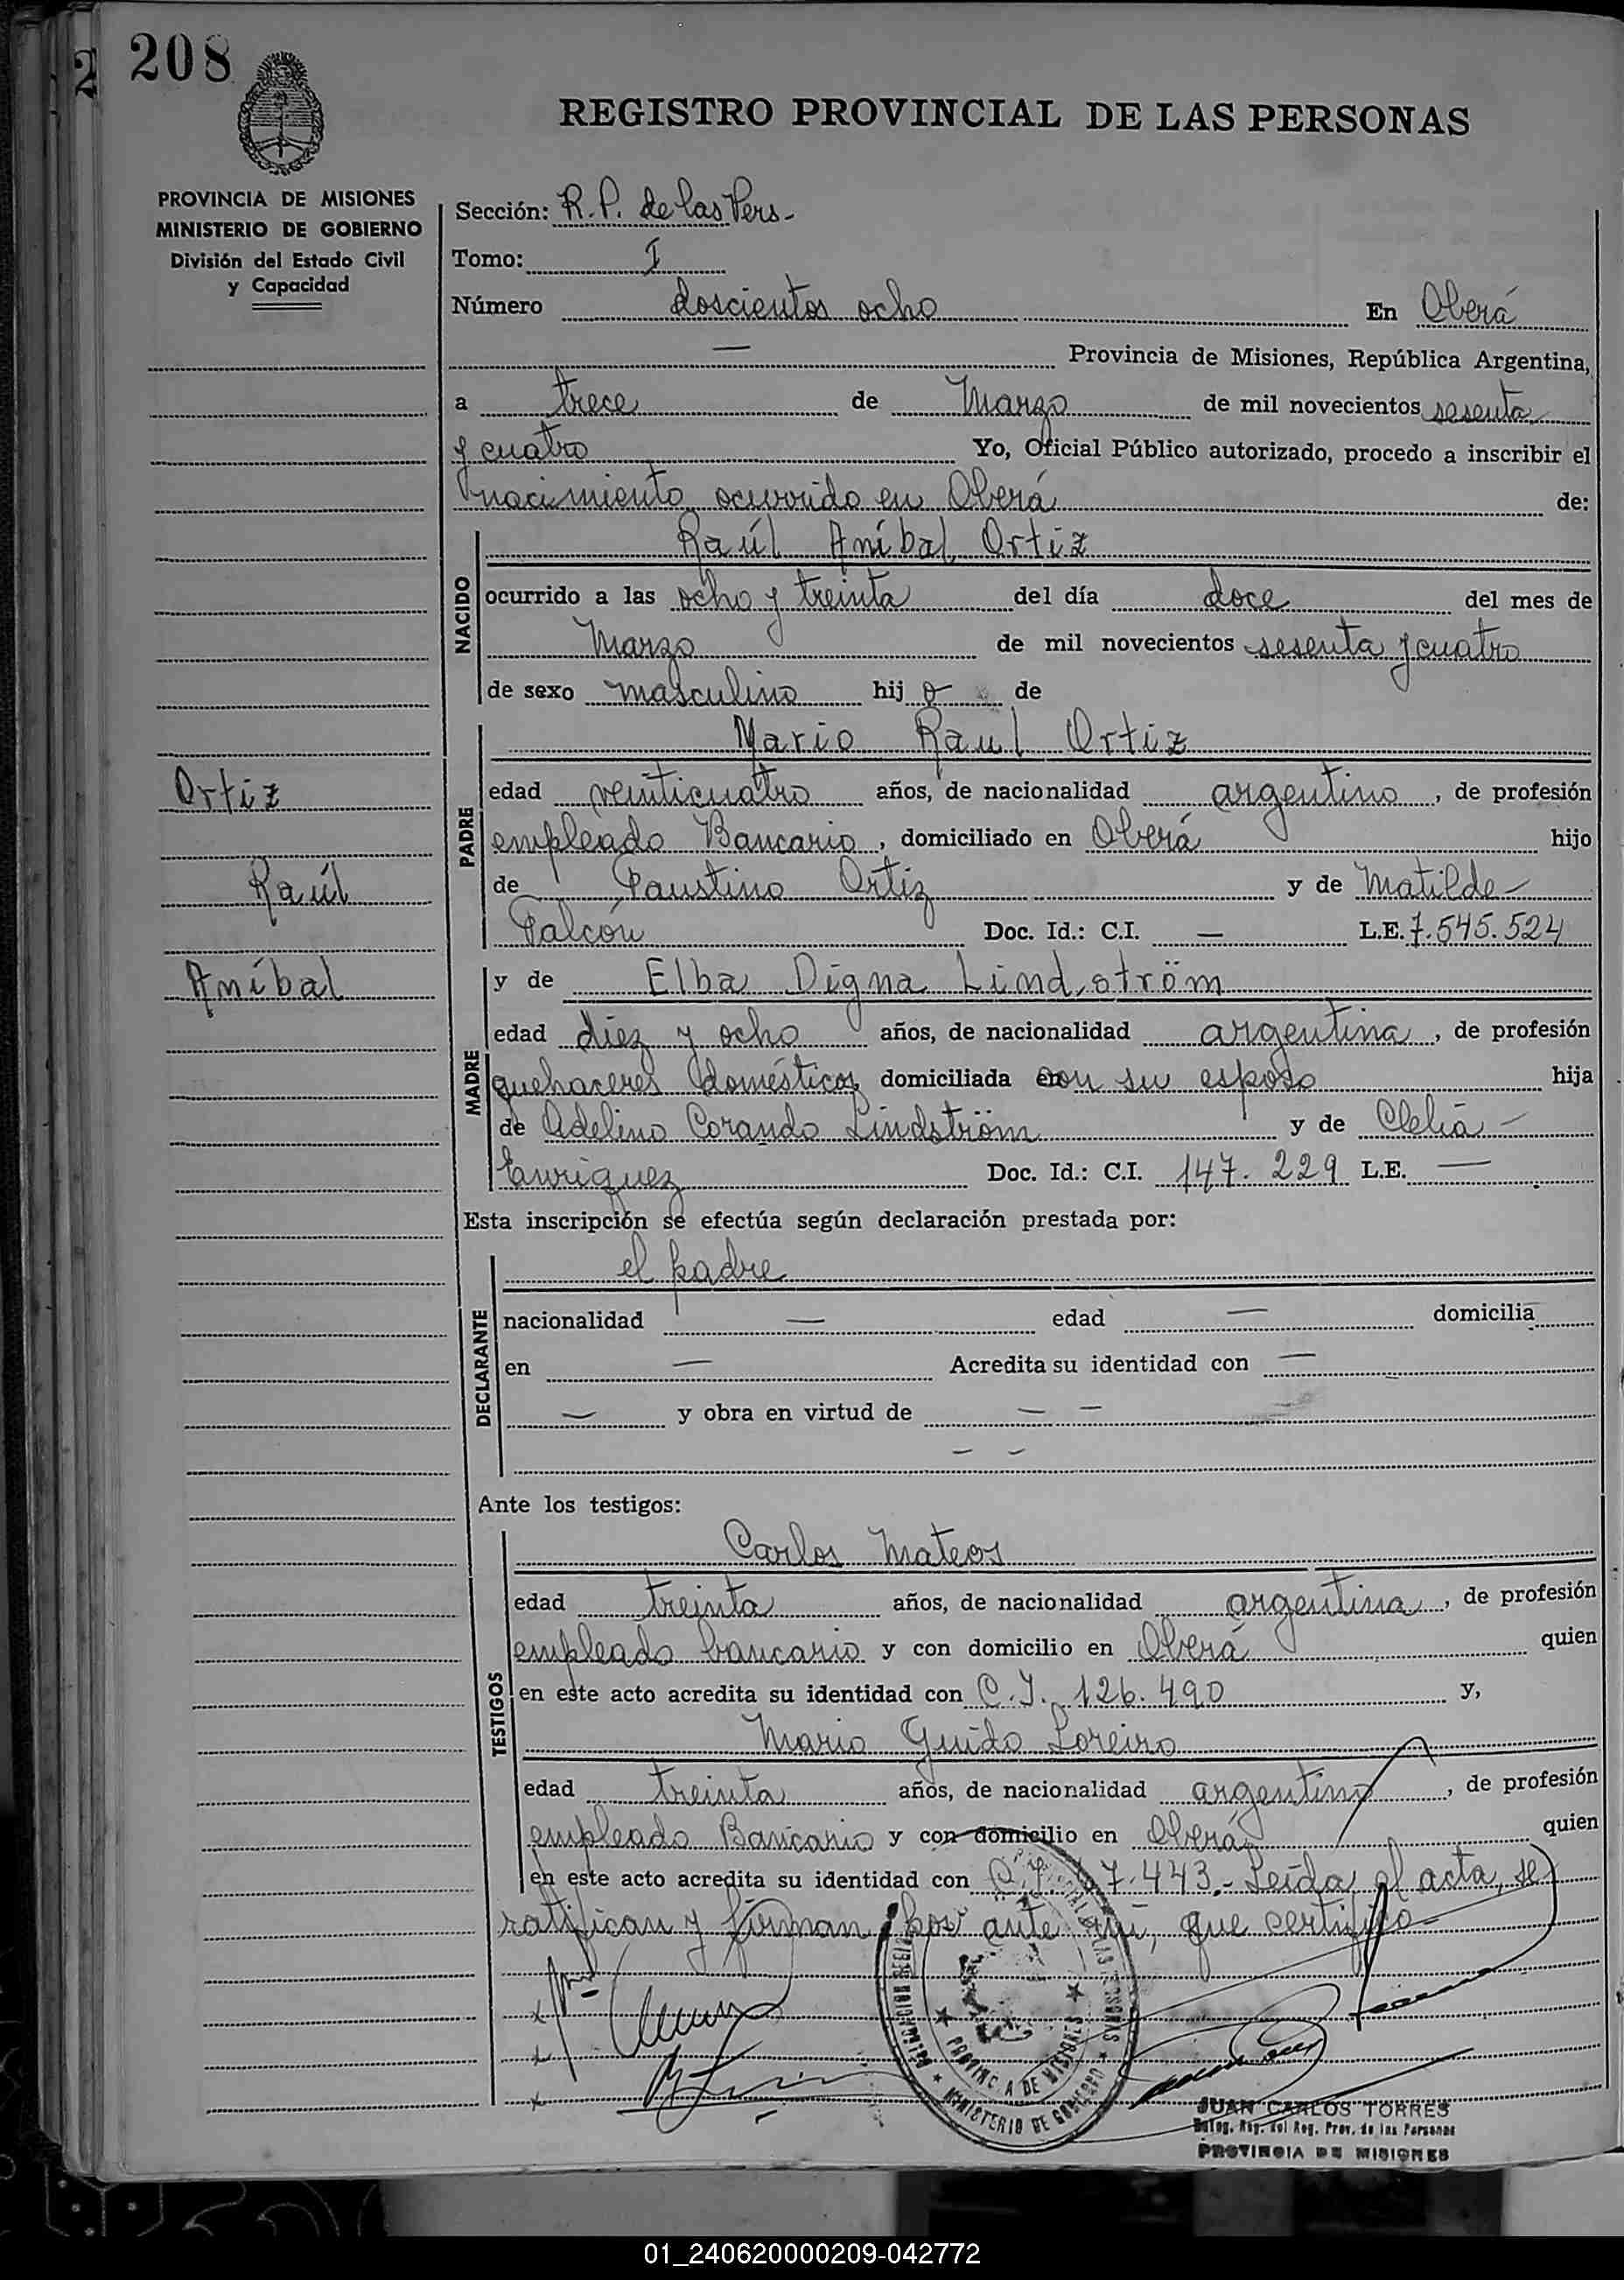 208
REGISTRO PROVINCIAL DE LAS PERSONAS
PROVINCIA DE MISIONES
MINISTERIO DE GOBIERNO
División del Estado Civil
y Capacidad
Sección: R.P. de las Pers-
Tomo: I
Número doscientos ocho En Oberá
— Provincia de Misiones, República Argentina,
a trece de Marzo de mil novecientos sesenta
y cuatro Yo, Oficial Público autorizado, procedo a inscribir el
nacimiento ocurrido en Oberá de:
NACIDO
Raúl Aníbal Ortiz
ocurrido a las ocho y treinta del día doce del mes de
Marzo de mil novecientos sesenta y cuatro
de sexo masculino hijo de
PADRE
Mario Raul Ortiz
Ortiz
edad veinticuatro años, de nacionalidad argentino, de profesión
empleado Bancario, domiciliado en Oberá hijo
Raúl
de Faustino Ortiz y de Matilde-
Falcón Doc. Id.: C.I. — L.E. 7.545.524
Aníbal
MADRE
y de Elba Digna Lindström
edad diez y ocho años, de nacionalidad argentina, de profesión
quehaceres domésticos domiciliada con su esposo hija
de Adelino Corando Lindström y de Clelia-
Enriquez Doc. Id.: C.I. 147.229 L.E. —
Esta inscripción se efectúa según declaración prestada por:
DECLARANTE
el padre
nacionalidad — edad — domicilia
en — Acredita su identidad con —
— y obra en virtud de — —
— —
Ante los testigos:
TESTIGOS
Carlos Mateos
edad treinta años, de nacionalidad argentina, de profesión
empleado bancario y con domicilio en Oberá quien
en este acto acredita su identidad con C.I. 126.490 y,
Mario Guido Loreiro
edad treinta años, de nacionalidad argentino, de profesión
empleado Bancario y con domicilio en Oberá quien
en este acto acredita su identidad con 7.443.- Leída el acta, se
ratifican y firman por ante mí, que certifico-
PROVINCIA DE MISIONES
MINISTERIO DE GOBIERNO
JUAN CARLOS TORRES
Deleg. Reg. del Reg. Prov. de las Personas
PROVINCIA DE MISIONES
01_240620000209-042772